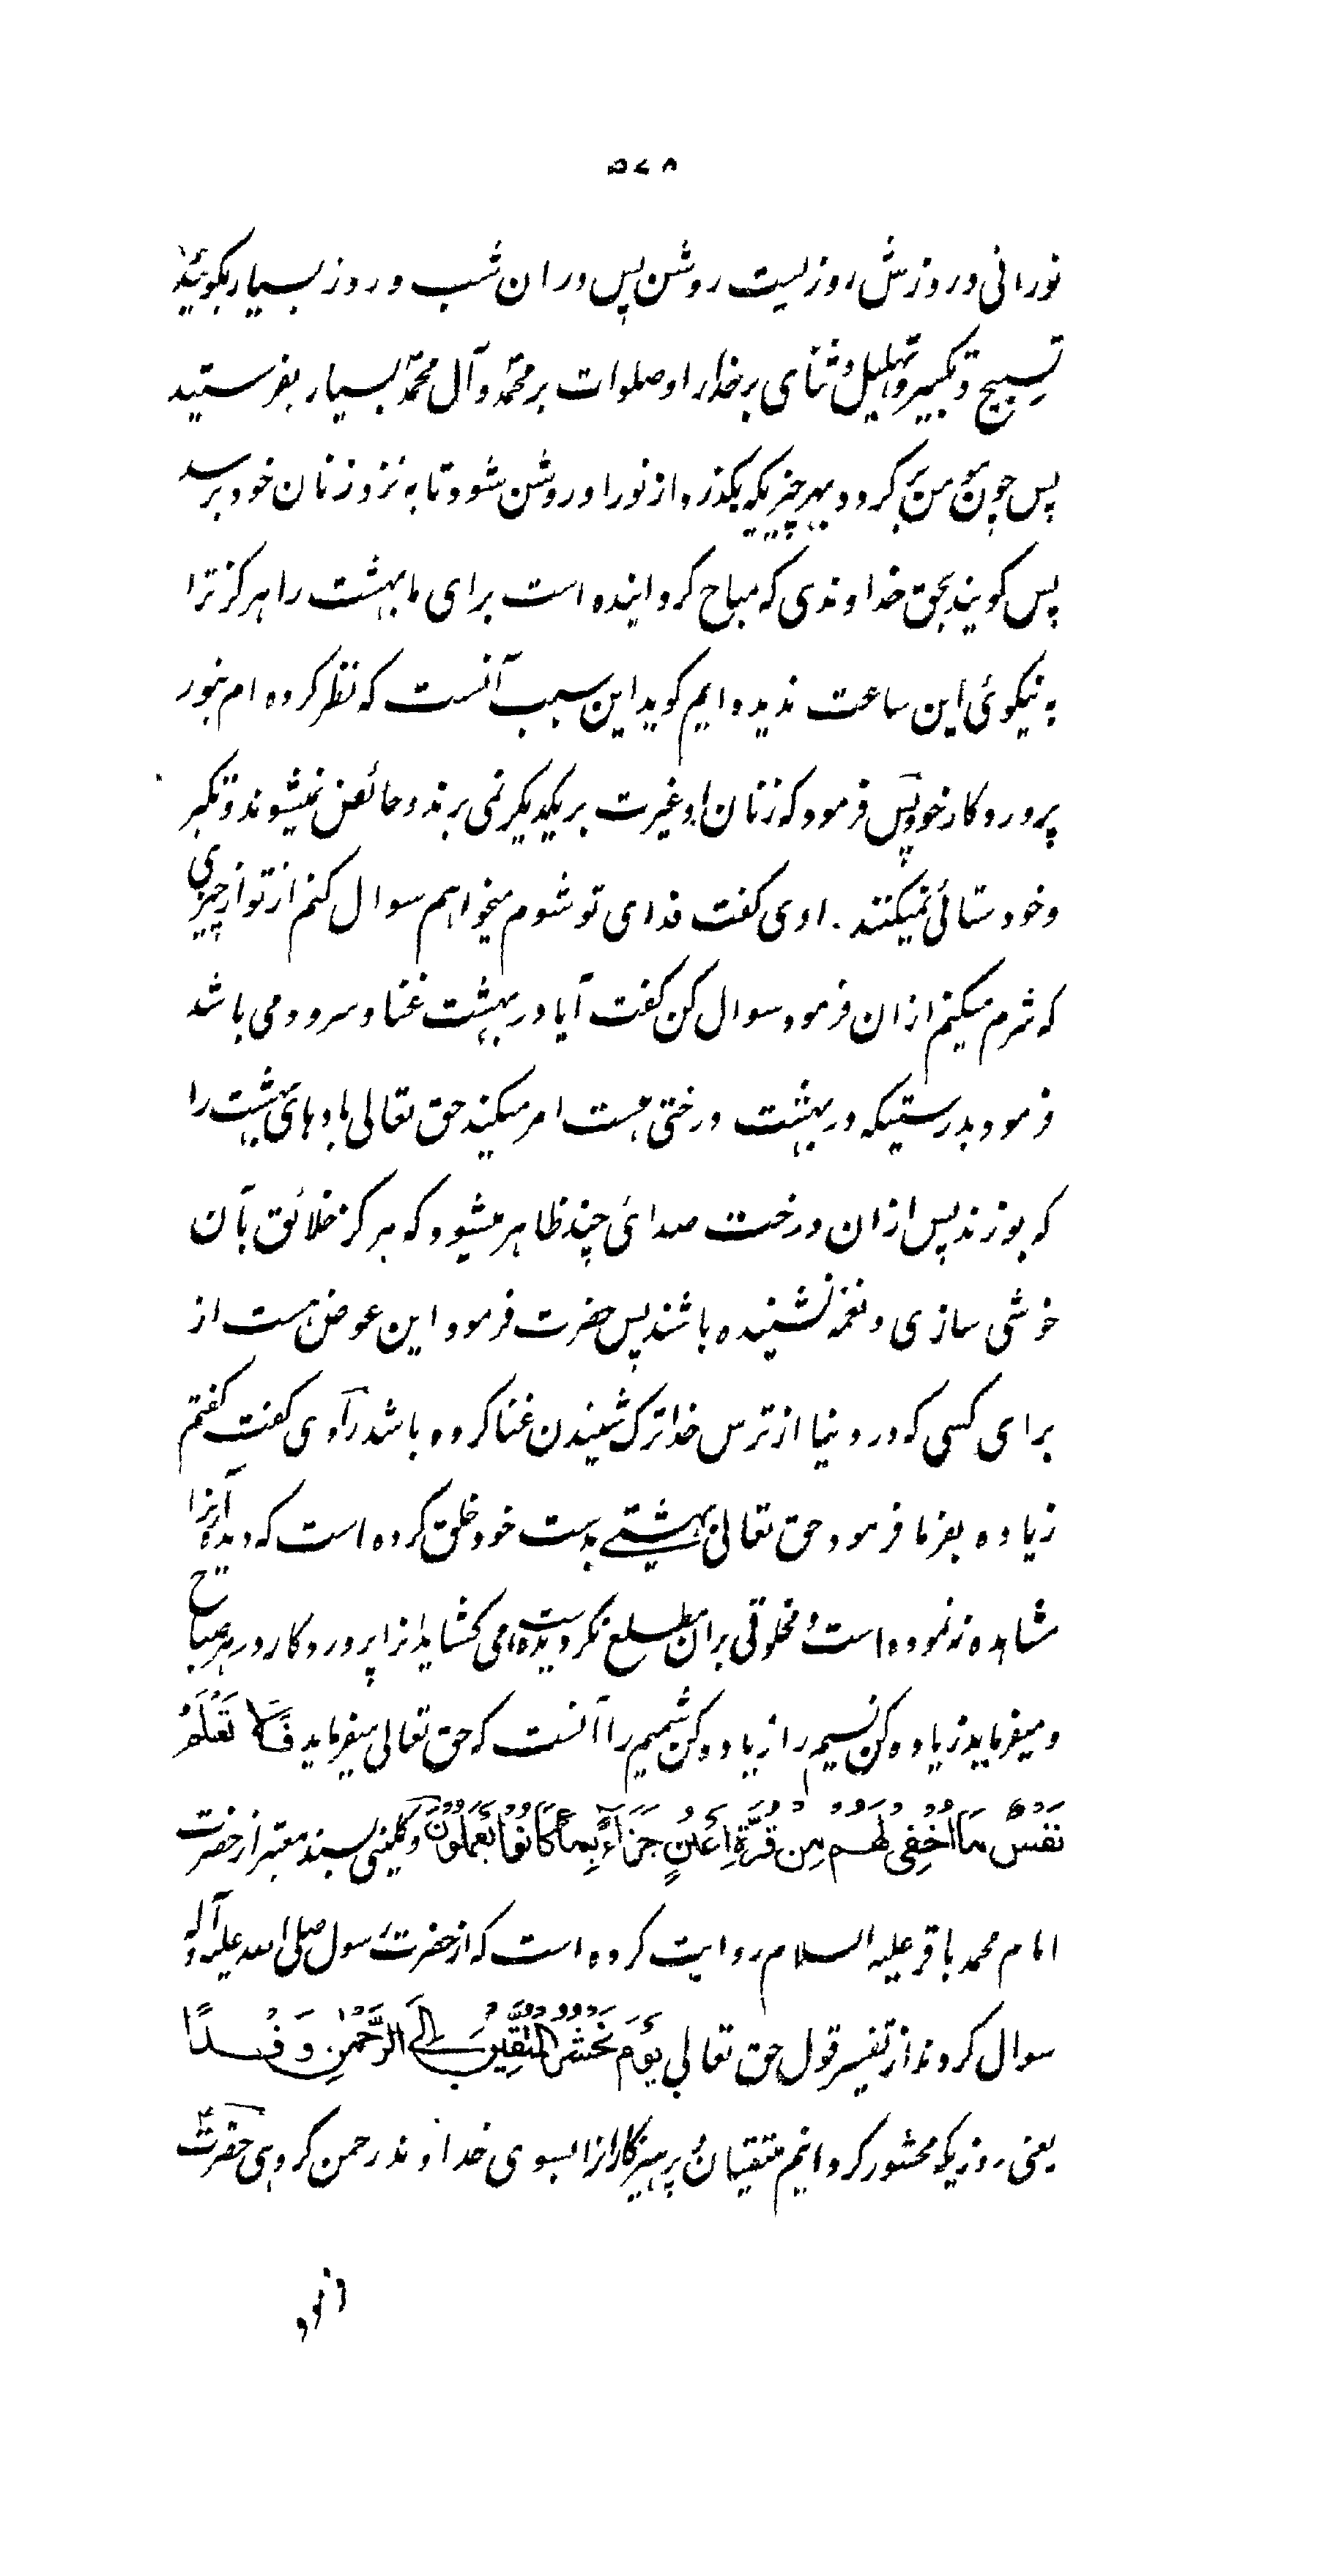 ۵۷۸
نورانی و روزش روزیست روشن پس دران شب و روز بسیار بکوئید
تسبیح و تکبیر و تهلیل و ثنای بر خدا را و صلوات بر محمّد و آل محمّد بسیار بفرستید
پس چون مؤمن بر کردد بهر چیزیکه بکذرد از نور او روشن شود تا به نزد زنان خود برسد
پس کویند بحق خداوندی که مباح کردانیده است برای ما بهشت را هرکز ترا
به نیکوئی این ساعت ندیده ایم کوید این سبب آنست که نظر کرده ام بنور
پروردکار خود پس فرمود که زنان او غیرت بر یکدیکر نمی برند و حائض نمیشوند و تکبر
و خود ستائی نمیکنند. راوی کفت فدای تو شوم میخواهم سوال کنم از تو از چیزی
که شرم میکنم ازان فرمود سوال کن کفت آیا در بهشت غنا و سرود می باشد
فرمود بدرستیکه در بهشت درختی هست امر میکند حق تعالی بادهای بهشت را
که بوزند پس ازان درخت صدائی چند ظاهر میشود که هرکز خلائق بآن
خوشی سازی و نغمه نشنیده باشند پس حضرت فرمود این عوض هست از
برای کسی که در دنیا از ترس خدا ترک شنیدن غنا کرده باشد راوی کفت کفتم
زیاده بفرما فرمود حق تعالی بهشتے بدست خود خلق کرده است که دیده آنرا
مشاهده نه نموده است و مخلوقی بران مطلع نکردیده است می کشاید انرا پروردکار در هر صباح
و میفرماید زیاده کن نسیم را زیاده کن شمیم را آنست که حق تعالی میفرماید فَلَا تَعْلَمُ
نَفْسٌ مَا اُخْفِی لَهُمْ مِن قُرَّةِ اَعْیُنٍ جَزَاءً بِمَا کَانُوا یَعْمَلُونَ و کلینی بسند معتبر از حضرت
امام محمد باقر علیه السلام روایت کرده است که از حضرت رسول صلی الله علیه و آله
سوال کردند از تفسیر قول حق تعالی یَوْمَ نَحْشُرُ الْمُتَّقِینَ اِلَے الرَّحْمٰنِ وَفْدًا
یعنی روزیکه محشور کردانیم متقیان و پرهیزکارانرا بسوی خداوند رحمن کروهی حضرت